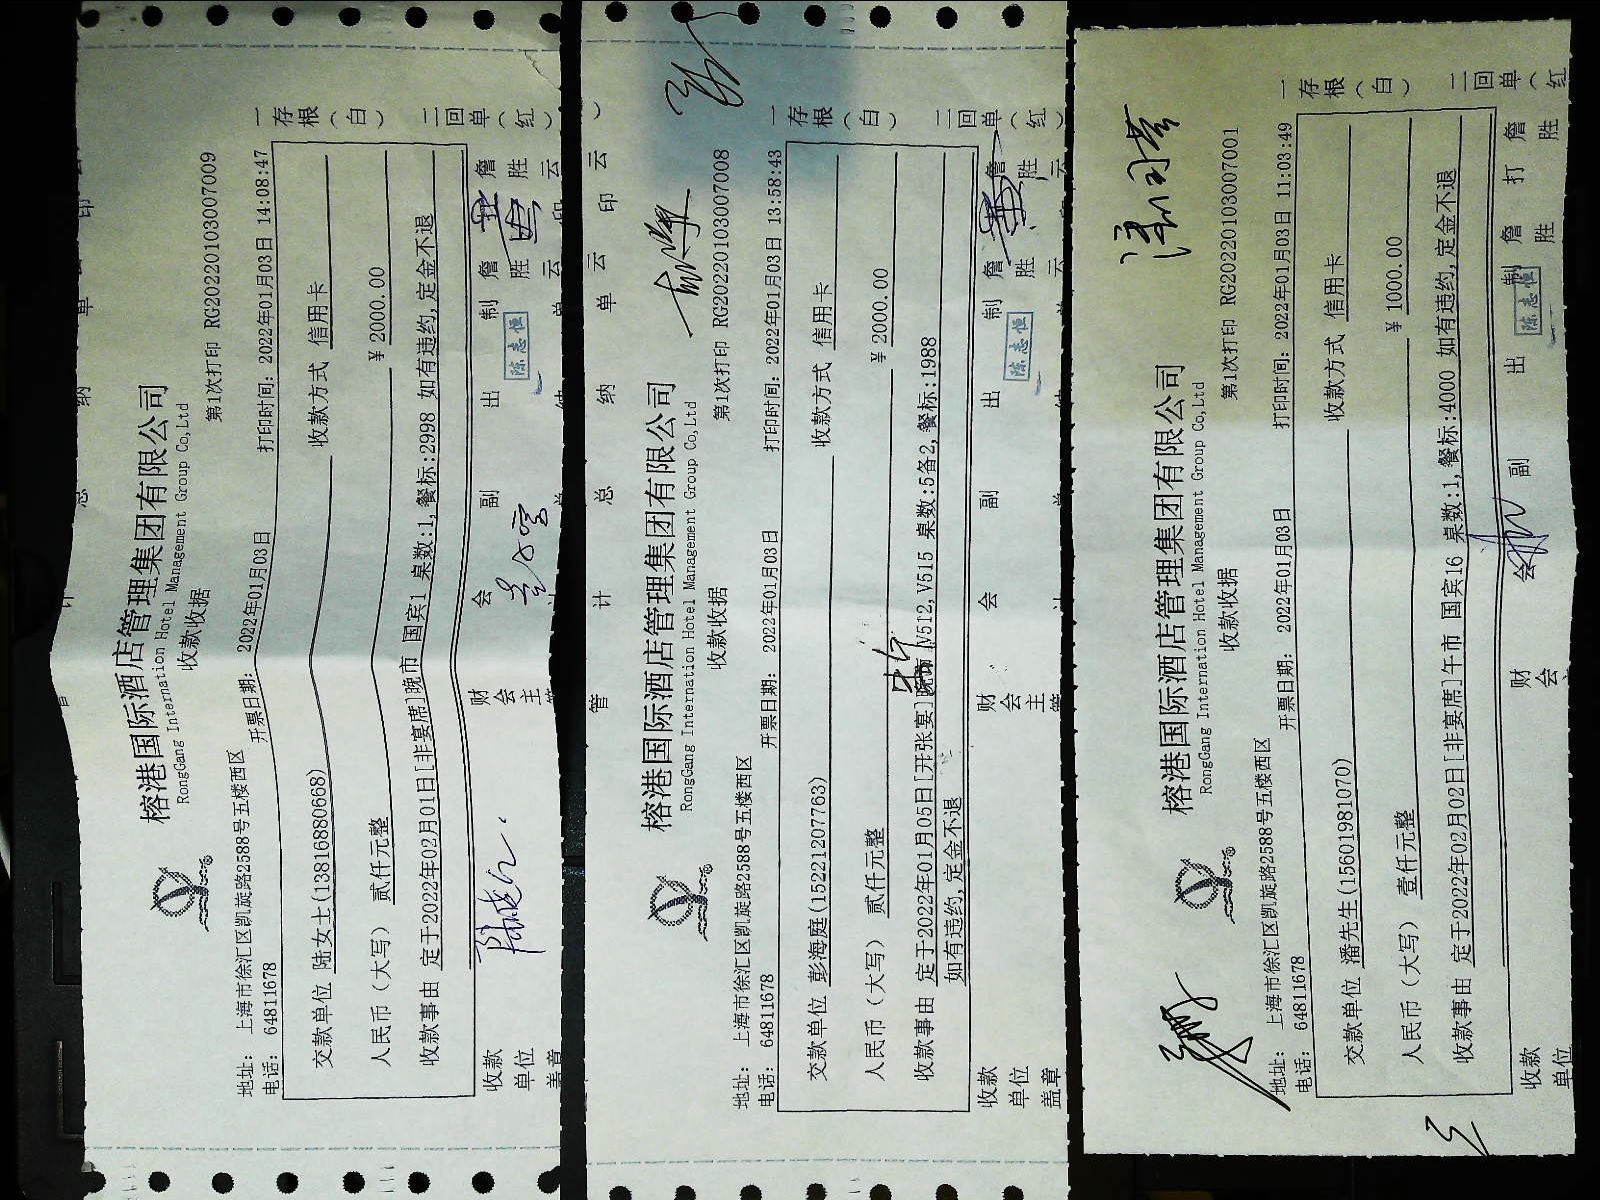 榕港国际酒店管理集团有限公司
RongGang Internation Hotel Management Group Co,Ltd
收款收据
第1次打印 RG20220103007009
地址: 上海市徐汇区凯旋路2588号五楼西区
电话: 64811678
开票日期: 2022年01月03日
打印时间: 2022年01月03日 14:08:47
交款单位 陆女士(13816880668)
收款方式 信用卡
人民币(大写) 贰仟元整
¥ 2000.00
收款事由 定于2022年02月01日[非宴席]晚市 国宾1 桌数:1,餐标:2998 如有违约,定金不退
一存根(白) 二回单(红)
收款单位盖章
财会主管
会
副
出
制 詹胜云
詹胜云
陈志恒
榕港国际酒店管理集团有限公司
RongGang Internation Hotel Management Group Co,Ltd
收款收据
第1次打印 RG20220103007008
地址: 上海市徐汇区凯旋路2588号五楼西区
电话: 64811678
开票日期: 2022年01月03日
打印时间: 2022年01月03日 13:58:43
交款单位 彭海庭(15221207763)
收款方式 信用卡
人民币(大写) 贰仟元整
¥ 2000.00
收款事由 定于2022年01月05日[开张宴]晚市 V512,V515 桌数:5备2,餐标:1988
如有违约,定金不退
一存根(白) 二回单(红)
管 计 总 纳 单 云 印 云
收款单位盖章
财会主管
会
副
出
制 詹胜云
詹胜云
陈志恒
榕港国际酒店管理集团有限公司
RongGang Internation Hotel Management Group Co,Ltd
收款收据
第1次打印 RG20220103007001
地址: 上海市徐汇区凯旋路2588号五楼西区
电话: 64811678
开票日期: 2022年01月03日
打印时间: 2022年01月03日 11:03:49
交款单位 潘先生(15601981070)
收款方式 信用卡
人民币(大写) 壹仟元整
¥ 1000.00
收款事由 定于2022年02月02日[非宴席]午市 国宾16 桌数:1,餐标:4000 如有违约,定金不退
一存根(白) 二回单(红
收款单位
财会
会
副
出
制 詹胜
打 詹胜
陈志恒